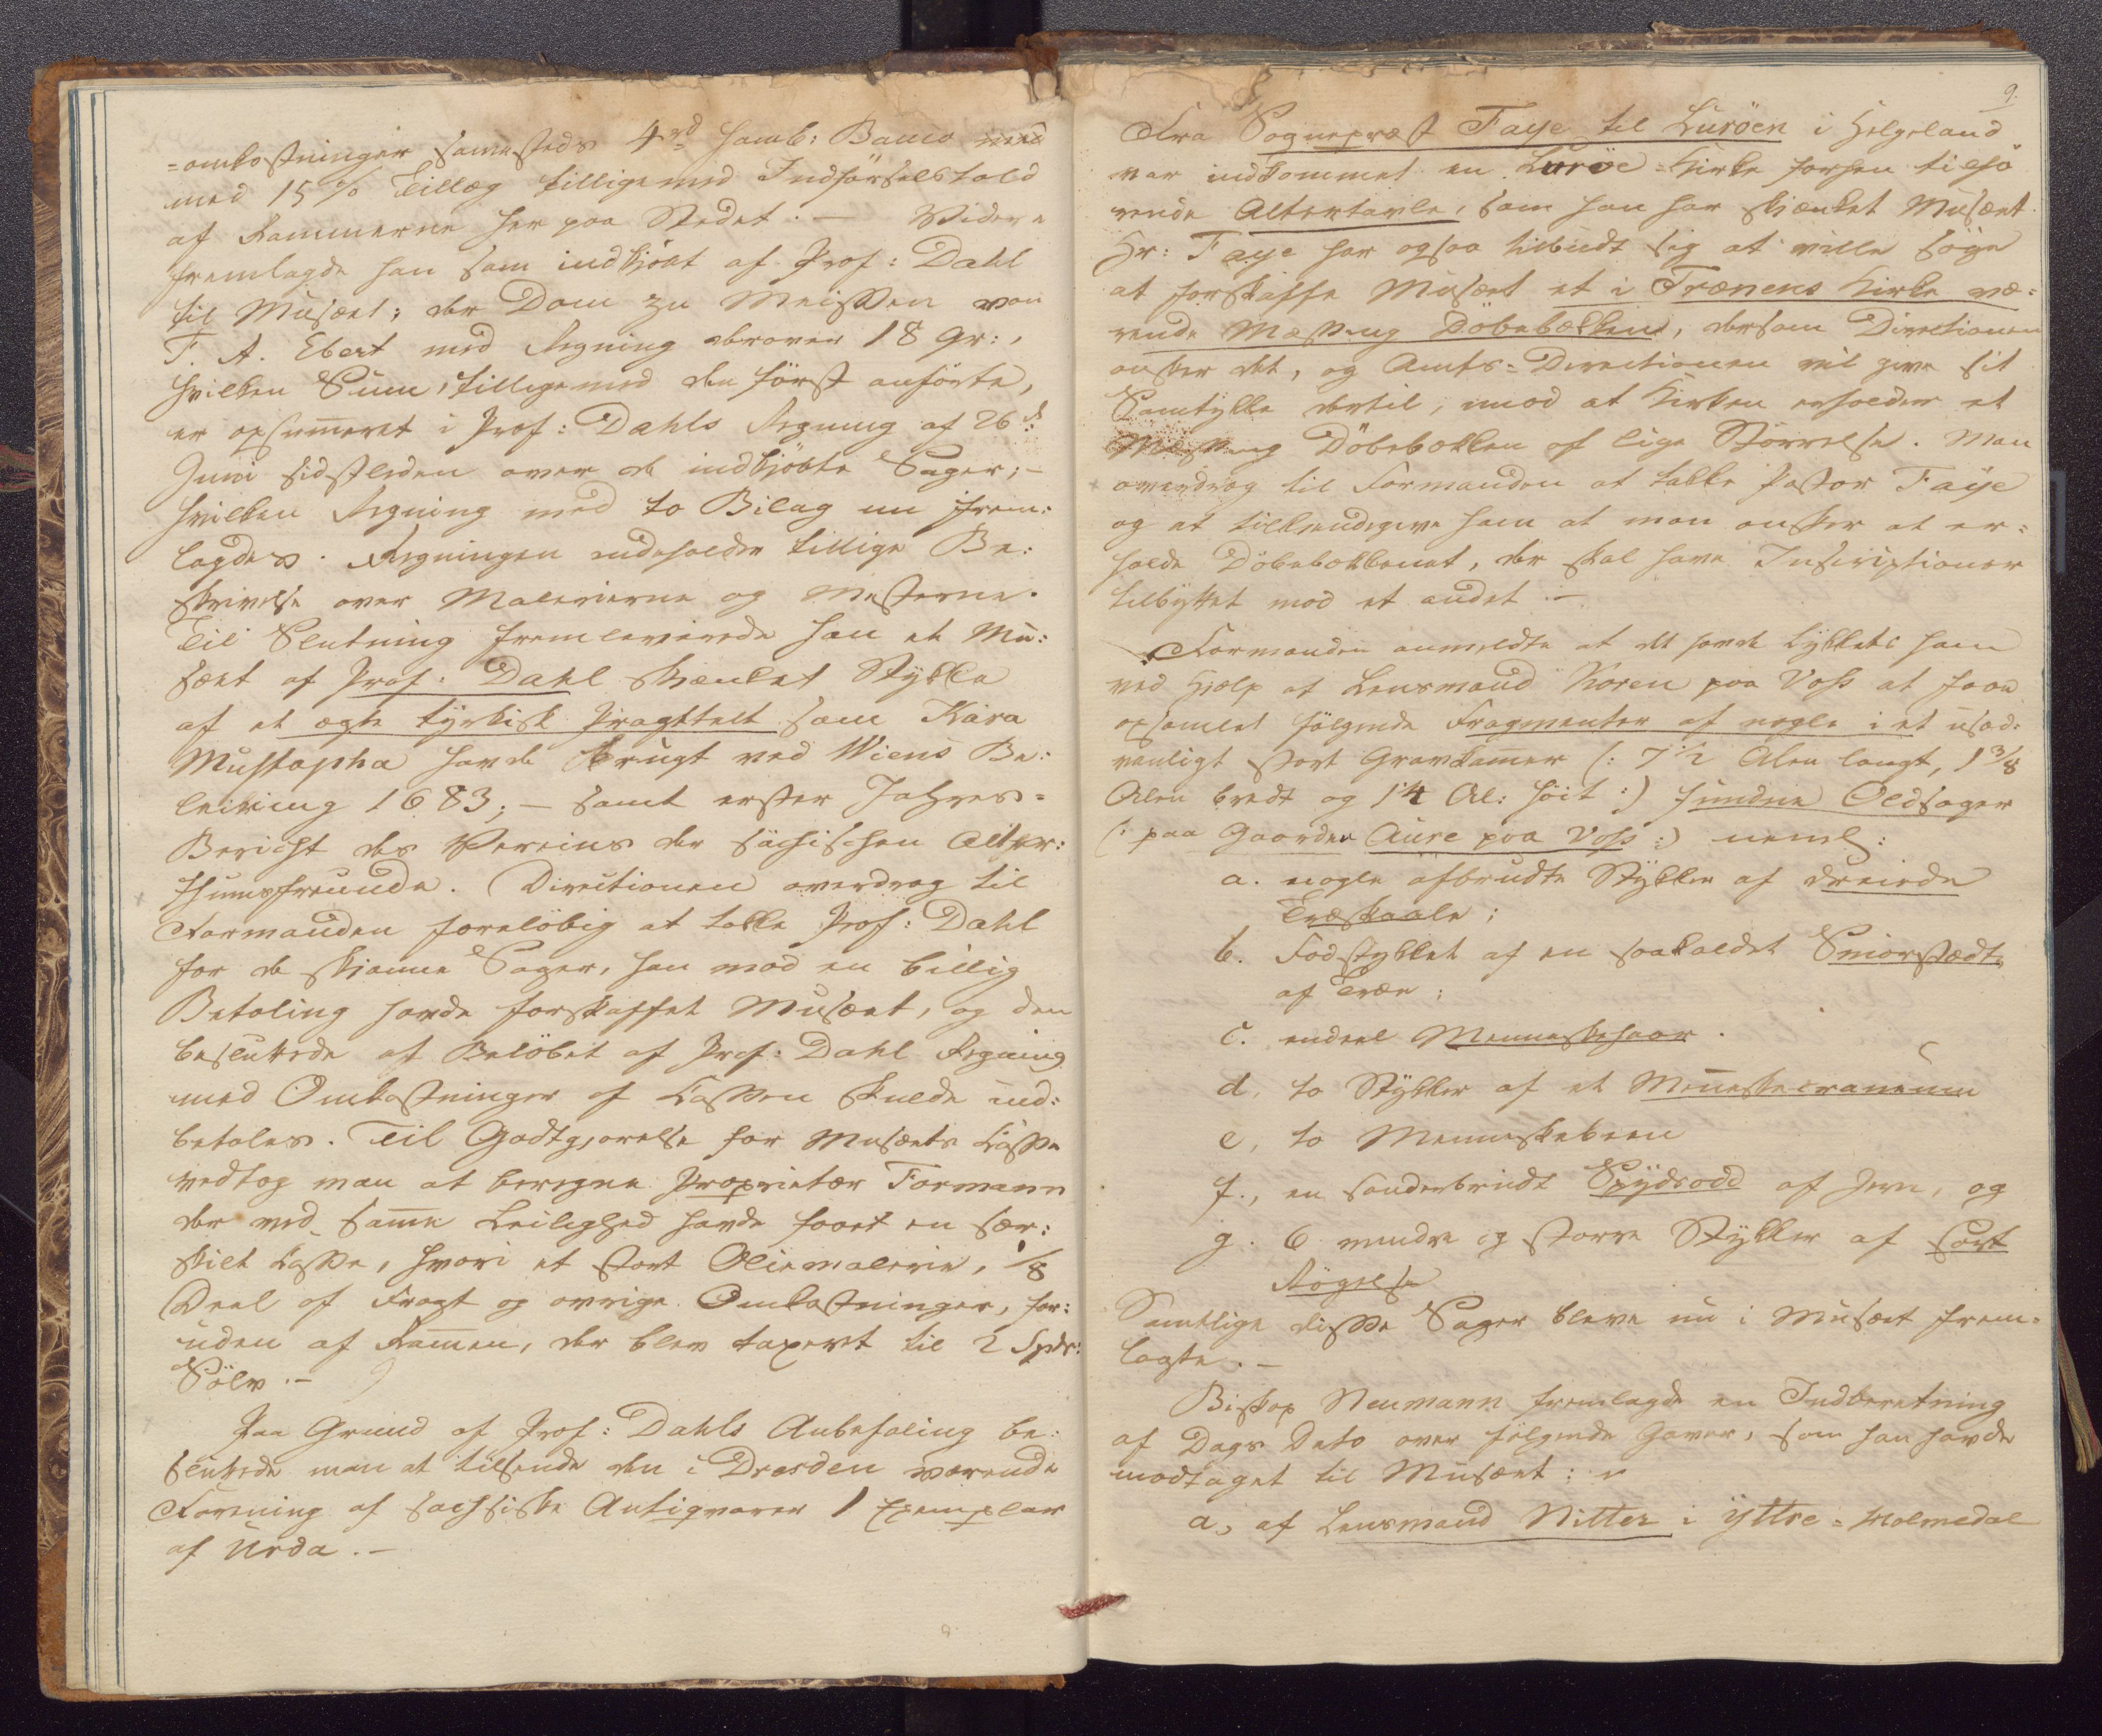 =omkostninger samesteds 4rd Hamb: Banco med
med 15 % Tillæg tilligemed Indførselstold
af Rammerne her paa Stedet. — Videre
fremlagde han som indkjøbt af Prof: Dahl
til Musæet; der Dom zu Meissen von
F. A. Ebert med Regning derover 18 gr:,
hvilken Sum, tilligemed den først anførte,
er opsum̅eret i Prof: Dahls Regning af 26d:
Juni sidstleden over de indkjøbte Sager; —
hvilken Regning med to Bilag nu frem:
lagdes. Regningen indeholder tillige Be:
skrivelse over Malerierne og Mesterne.
Til Slutning fremleverede han et Mu:
sæet af Prof: Dahl skjenket Stykke
af et ægte tyrkisk Pragttelt som Kara
Mustapha havde brugt ved Wiens Be:
leiring 1683; — samt erster Jahres=
Bericht des Vereins der sächsischen Alter:
thumsfreunde. Directionen overdrog til
Formanden foreløbig at takke Prof: Dahl
for de skjønne Sager, han mod en billig
Betaling havde forskaffet Musæet, og den
besluttede at Beløbet af Prof: Dahl Regning
med Omkostninger af Cassen skulde ind:
betales. Til Godtgjørelse for Musæets Casse
vedtog man at beregne Proprietær Formann
der ved sam̅e Leilighed havde faaet en sær:
skilt Casse, hvori et stort Oliemalerie, 1/8
Deel af Fragt og øvrige Omkostninger, for:
uden af Ram̅en, der blev taxeret til 2 Spdr:
Sølv. —
Paa Grund af Prof: Dahls Anbefaling be:
sluttede man at tilsende den i Dresden værende
Forening af sachsiske Antiqvarer 1 Exemplar
af Urda. —
9.
Fra Sognepræst Faye til Lurøen i Helgeland
var indkommet en Lurøe=Kirke forhen tilhø
rende Altertavle, som han har skjænket Musæet.
Hr: Faye har ogsaa tilbudt sig at ville søge
at forskaffe Musæet et i Trænens Kirke væ:
rende Messing Døbebækken, dersom Directionen
ønsker det, og Amts=Directionen vil give sit
Samtykke dertil, imod at Kirken erholder et
Messing Døbebækken af lige Størrelse. Man
overdrog til Formanden at takke Pastor Faye
og at tilkjendegive ham at man ønsker at er=
holde Døbebækkenet, der skal have Inscriptioner
tilbyttet mod et andet. —
Formanden anmeldte at det havde lykkets ham
ved Hjelp af Lensmand Koren paa Voss at faae
opsamlet følgende Fragmenter af nogle i et usæd:
vanligt stort Gravkam̅er (: 7 1/2 Alen langt, 1 3/8
Alen bredt og 1 1/4 Al: høit :) fundne Oldsager
(: paa Gaarden Aure paa Voss :) neml:
a. nogle afbrudte Stykker af dreiede
Træskaale;
b. Fodstykket af en saakaldet Smørstædt
af Træe;
c. endeel Menneskehaar.
d. to Stykker af et Men̅eskecranium
e, to Menneskebeen
f., en sønderbrudt Spydsodd af Jern, og
g. 6 mindre og større Stykker af sort
Røgelse
Samtlige disse Sager bleve nu i Musæet frem=
lagte. —
Biskop Neumann fremlagde en Indberetning
af Dags Dato over følgende Gaver, som han havde
modtaget til Musæet: —
a, af Lensmand Nitter i Yttre=Holmedal